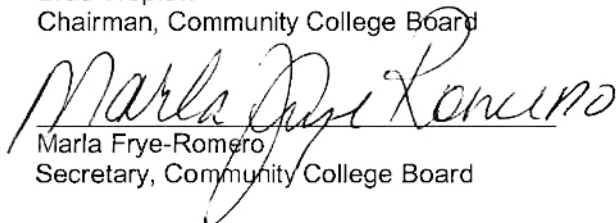 Chairman, Community College Board
Marla Frye Romero
Marla Frye-Romero
Secretary, Community College Board